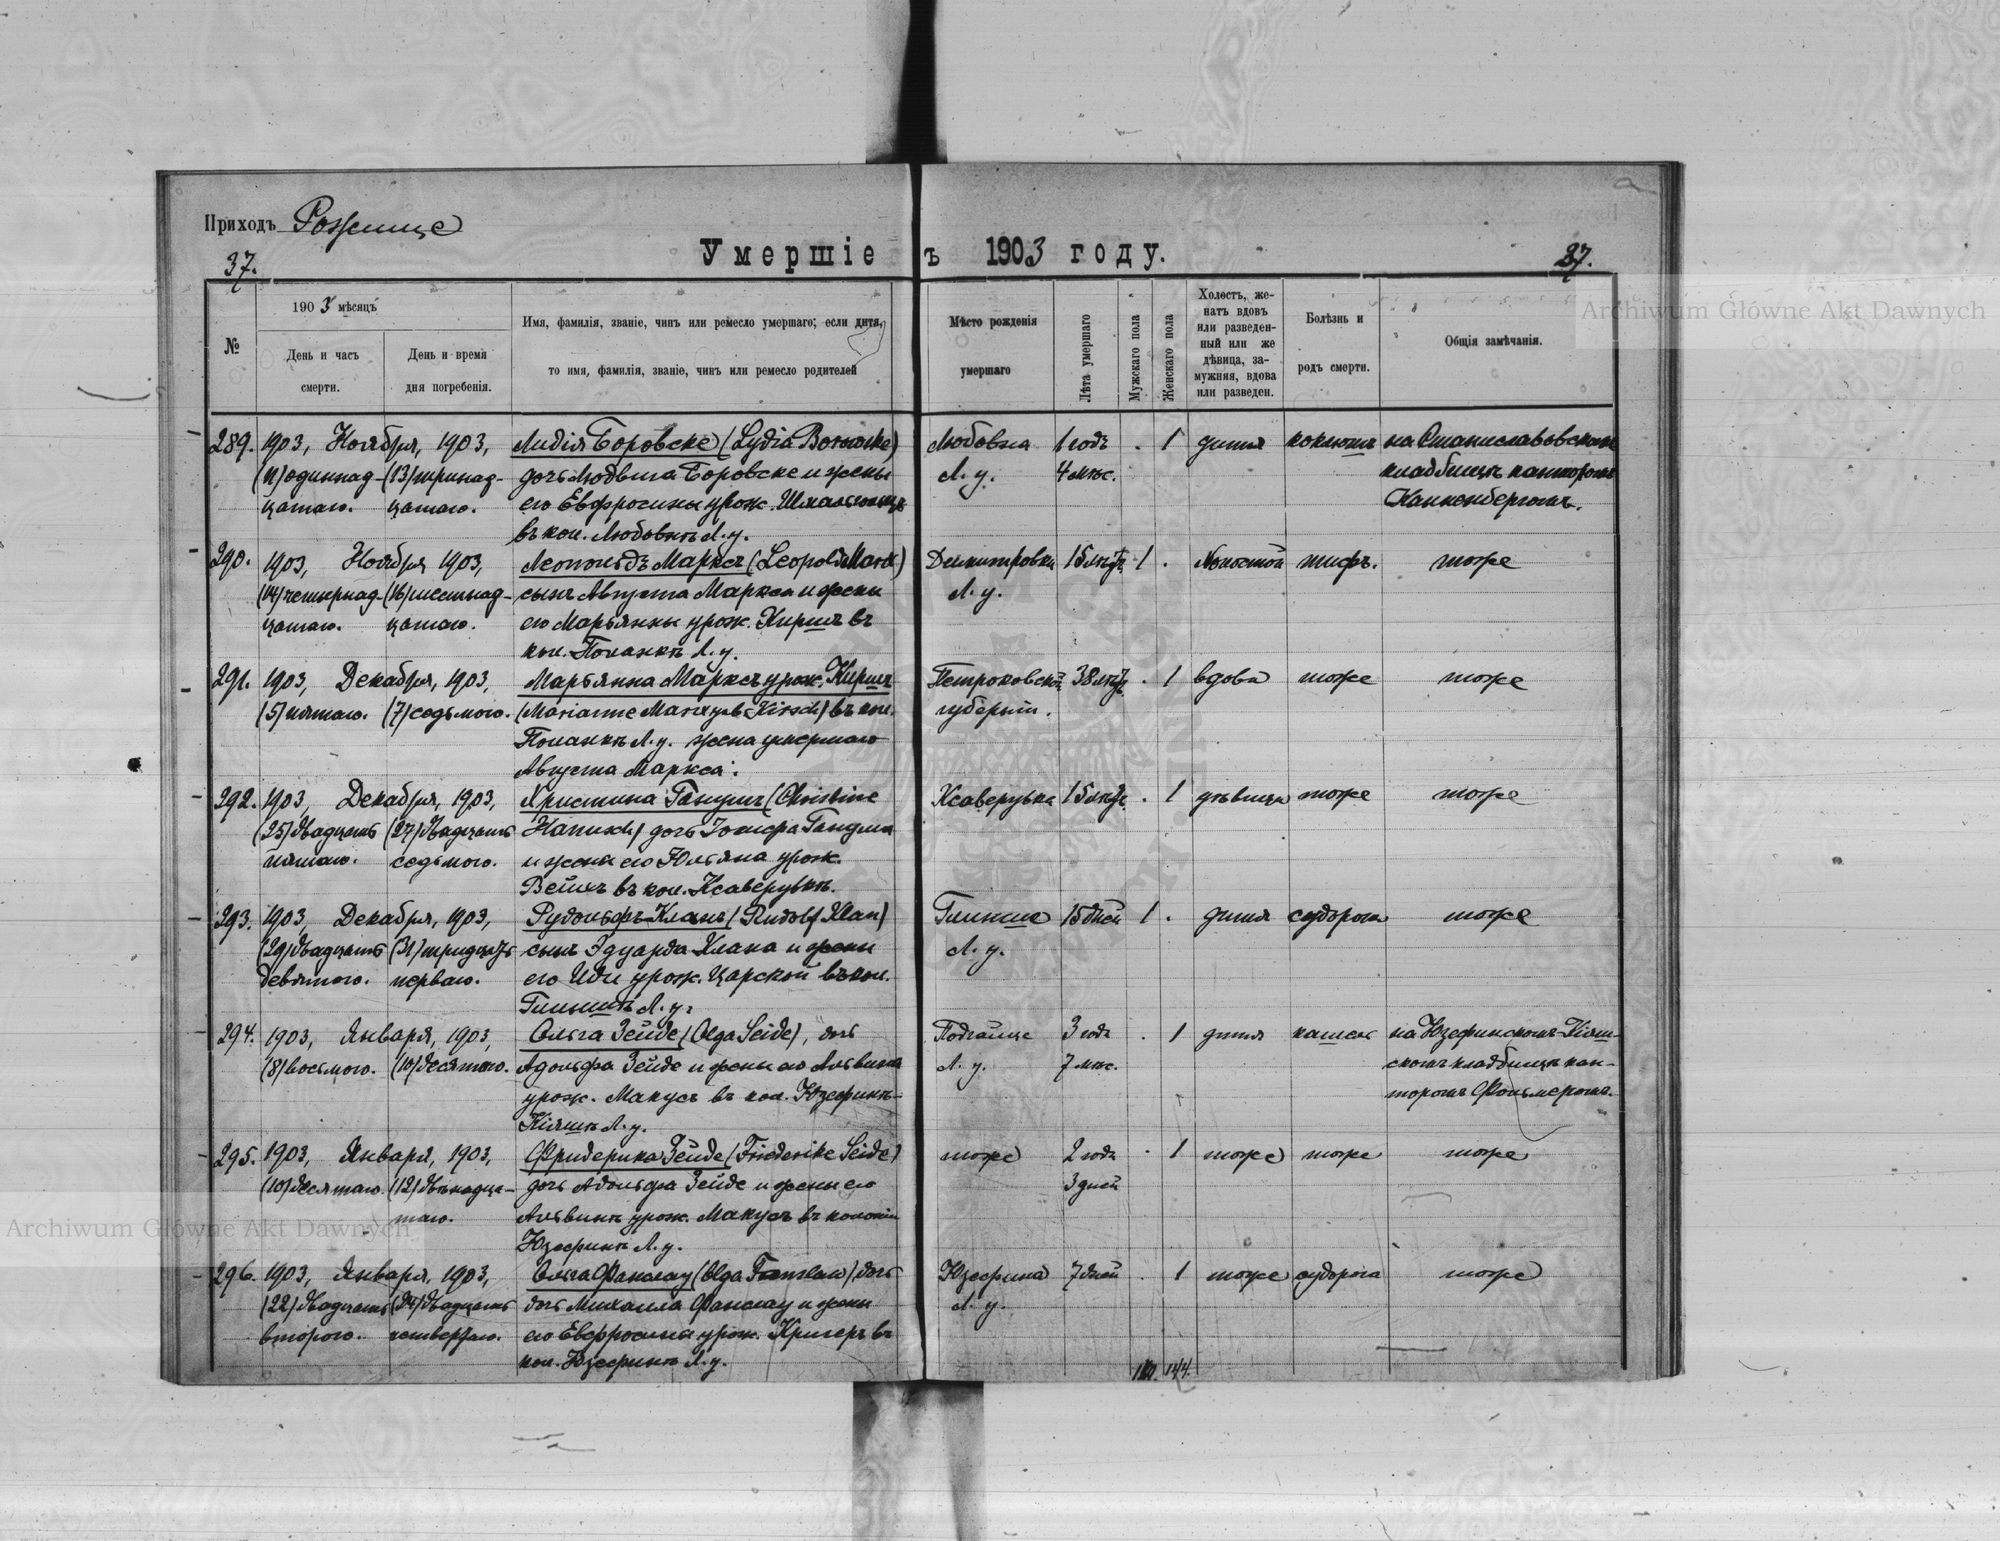 Приходъ Рожище
Умершіе въ 1903 году.
37.
37.
№
1903 мѣсяцъ
День и часъ смерти.
День и время дня погребенія.
Имя, фамилія, званіе, чинъ или ремесло умершаго; если дитя,
то имя, фамилія, званіе, чинъ или ремесло родителей
Мѣсто рожденія
умершаго
Лѣта умершаго
Мужскаго пола
Женскаго пола
Холостъ, же-
натъ вдовъ
или разведен-
ный или же
дѣвица, за-
мужняя, вдова
или разведен.
Болѣзнь и
родъ смерти.
Общія замѣчанія.
289. 1903, Ноября, 1903, Лидія Боровске (Lydia Borowske) Любовка 1 годъ . 1 дитя коклюшъ на Станиславовскомъ
(11) одиннад- (13) тринад- дочь Людвига Боровске и жены Л. у. 4 мѣс. кладбищѣ канторомъ
цатаго. цатаго. его Евфросины урож. Калленбергомъ.
въ кол. Любовкѣ Л. у.
290. 1903, Ноября 1903, Леопольдъ Марксъ (Leopold Marx) Дмитровка 15 лѣтъ 1 . Холостой тифъ. тоже
(14) четырнад- (16) шестнад- сынъ Августа Маркса и жены Л. у.
цатаго. цатаго. его Марьянны урож. Киршъ въ
кол. Полянкѣ Л. у.
291. 1903, Декабря, 1903, Марьянна Марксъ урож. Киршъ Петроковской 38 лѣтъ . 1 вдова тоже тоже
(5) пятаго. (7) седьмого. (Marianne Marx geb. Kirsch) въ кол. губерніи.
Полянкѣ Л. у. жена умершаго
Августа Маркса.
292. 1903, Декабря, 1903, Христина Ганушъ (Christine Ксаверувка 15 лѣтъ . 1 дѣвица тоже тоже
(25) двадцать (27) двадцать Hanusch) дочь Іосифа Гануша
пятаго. седьмого. и жены его Юльяна урож.
въ кол. Ксаверувкѣ.
293. 1903, Декабря, 1903, Рудольфъ Кланъ (Rudolf Klan) Глинище 15 дней 1 . дитя судорога тоже
(29) двадцать (31) тридцать сынъ Эдуарда Клана и жены Л. у.
девятого. перваго. его Иды урож. Царской въ кол.
Глинищѣ Л. у.
294. 1903, Января, 1903, Ольга Зейде (Olga Seide), дочь Подгайце 3 года . 1 дитя кашель на Юзефинскомъ-Кіяш-
(8) восьмого. (10) десятого. Адольфа Зейде и жены его Альвина Л. у. 7 мѣс. скомъ кладбищѣ кан-
урож. Макусъ въ кол. Юзефинѣ- торомъ Фольмеромъ.
Кіяшѣ Л. у.
295. 1903, Января, 1903, Фридерика Зейде (Friederike Seide) тоже 2 года . 1 тоже тоже тоже
(10) десятаго. (12) двѣнадца- дочь Адольфа Зейде и жены его 3 дней
таго. Альвинѣ урож. Макусъ въ колоніи
Юзефинѣ Л. у.
296. 1903, Января, 1903, Ольга Фанслау (Olga Fanslau) дочь Юзефина 7 дней . 1 тоже судорога тоже
(22) двадцать (24) двадцать дочь Михаила Фанслау и жены Л. у.
второго. четвертаго. его Евфросина урож. Кригеръ въ
кол. Юзефинѣ Л. у.
144.
Archiwum Główne Akt Dawnych
Archiwum Główne Akt Dawnych